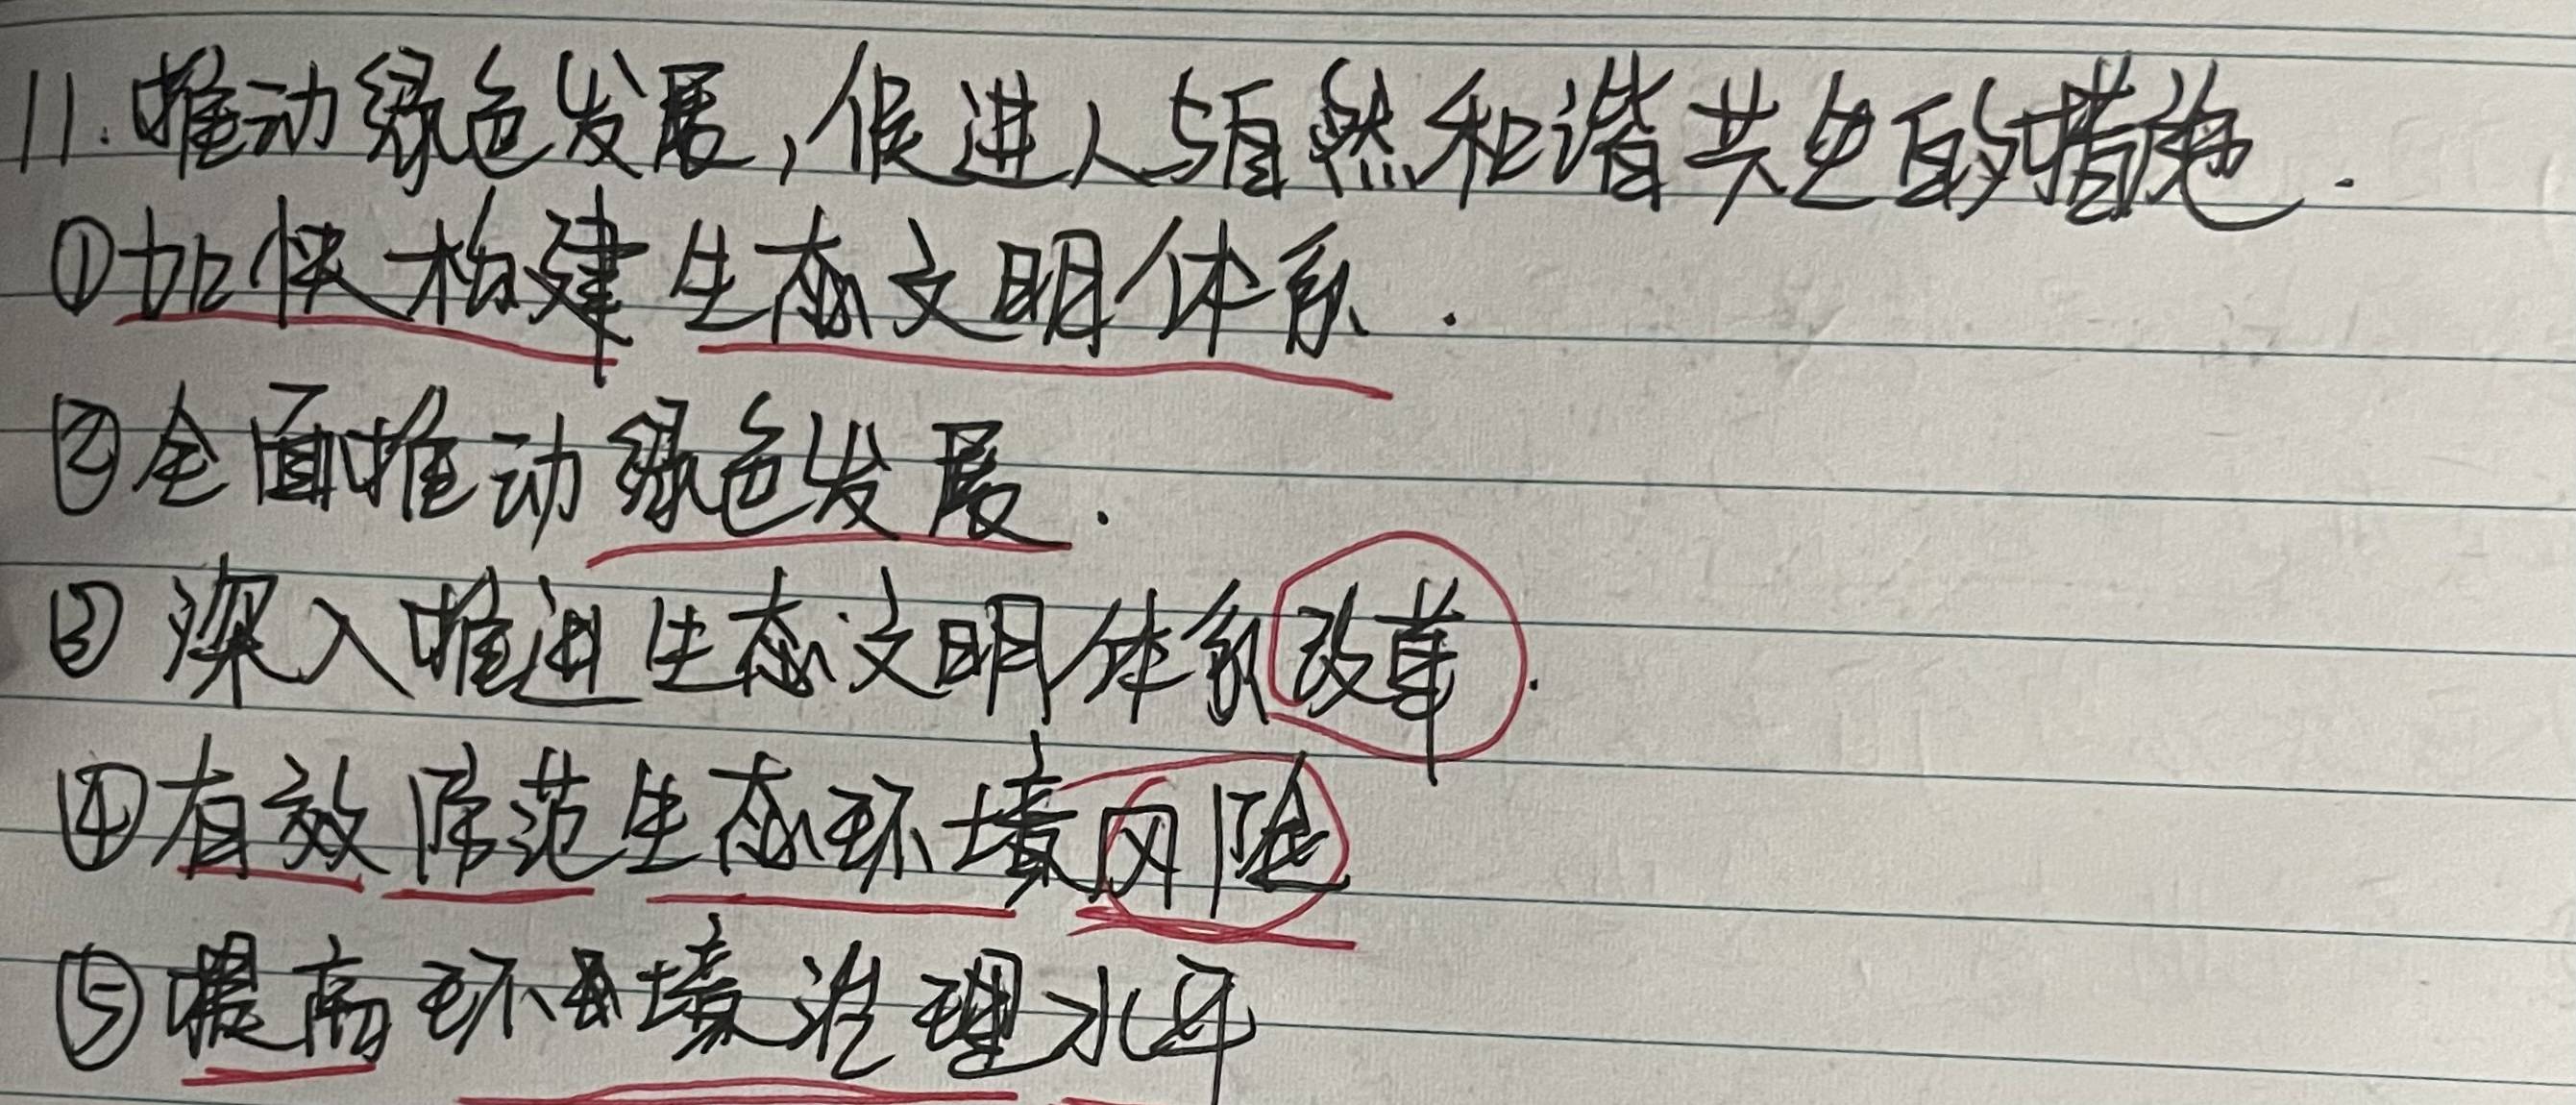 11.推动绿色发展,促进人与自然和谐共生的措施.
①加快构建生态文明体系.
②全面推动绿色发展.
③深入推进生态文明体系改革.
④有效防范生态环境风险
⑤提高环境治理水平